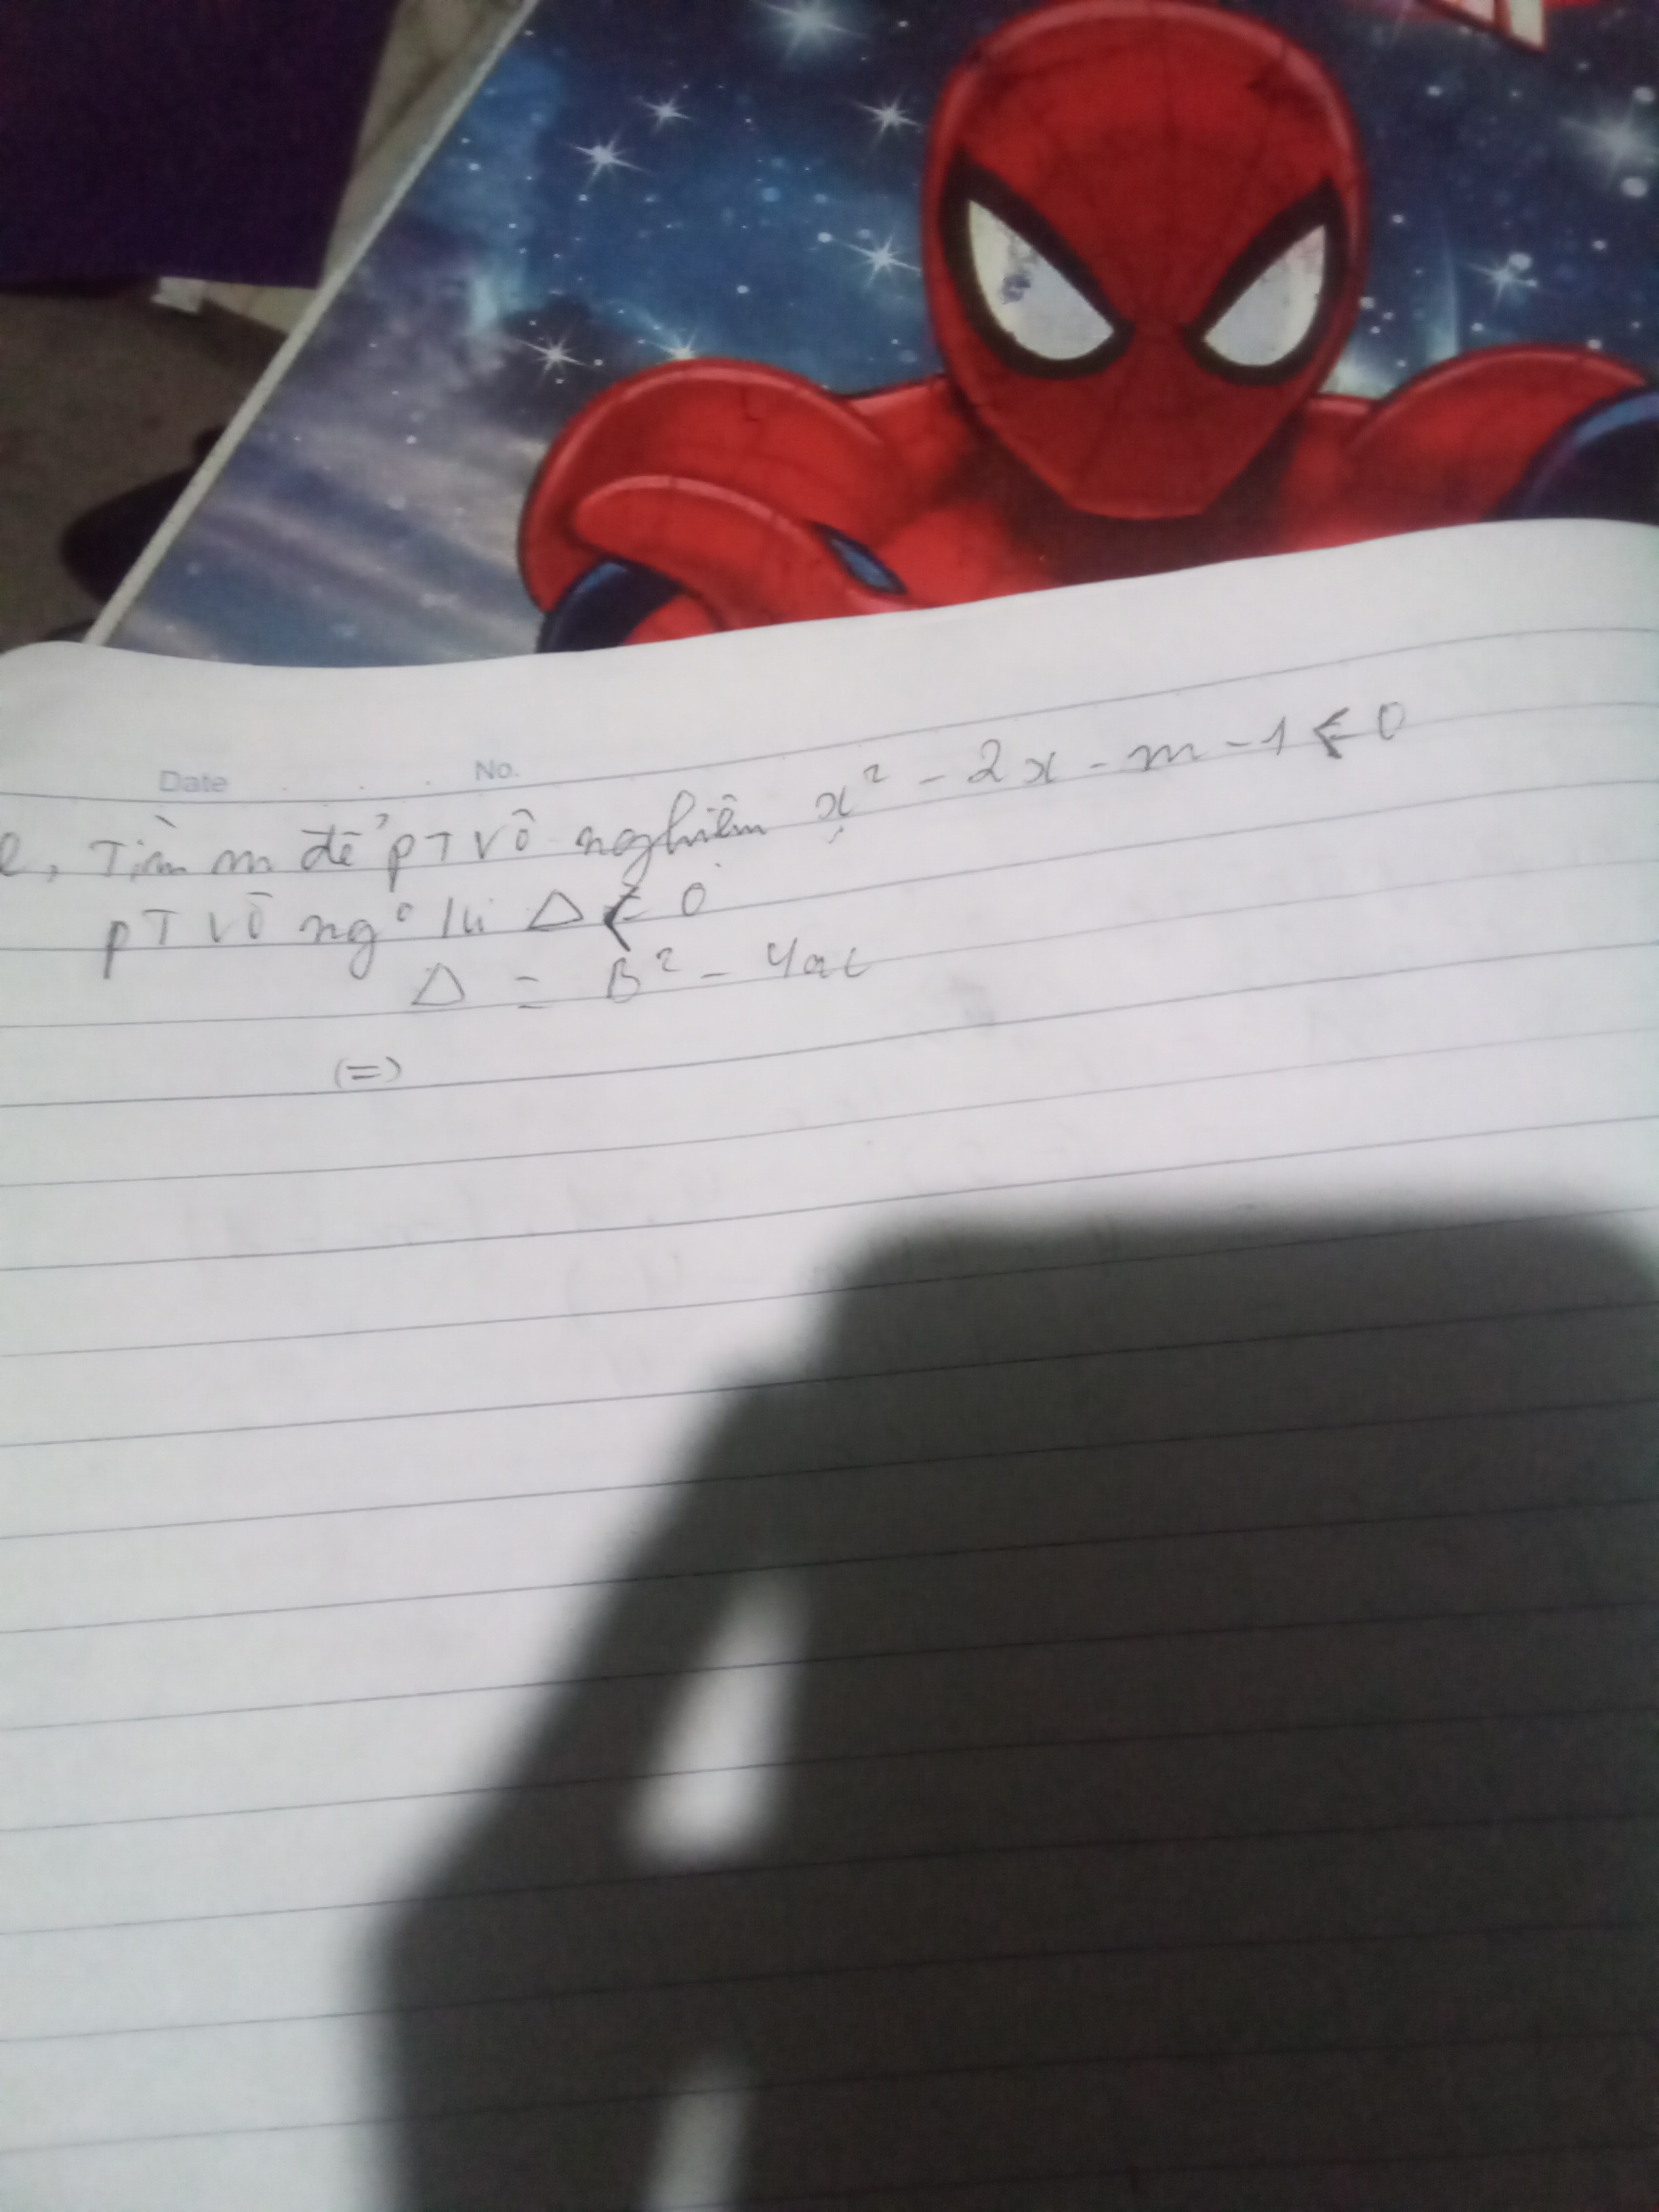 Date No.
e, Tìm m để pT vô nghiệm x² - 2x - m - 1 < 0
pT vô ng° khi Δ < 0
Δ = B² - 4ac
(=)